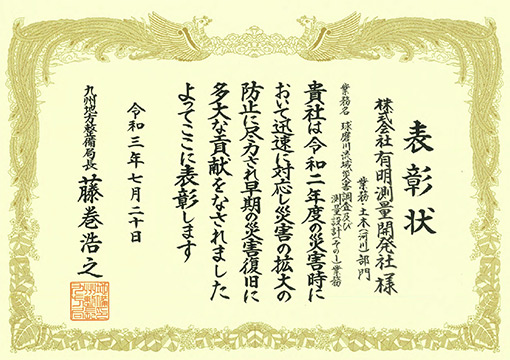 表彰状
業務・土木(河川)部門
株式会社 有明測量開発社 様
業務名 球磨川流域災害調査及び
測量設計(その1)業務
貴社は令和二年度の災害時に
おいて迅速に対応し災害の拡大の
防止に尽力され早期の災害復旧に
多大な貢献をなされました
よってここに表彰します
令和三年七月二十日
九州地方整備局長 藤巻浩之